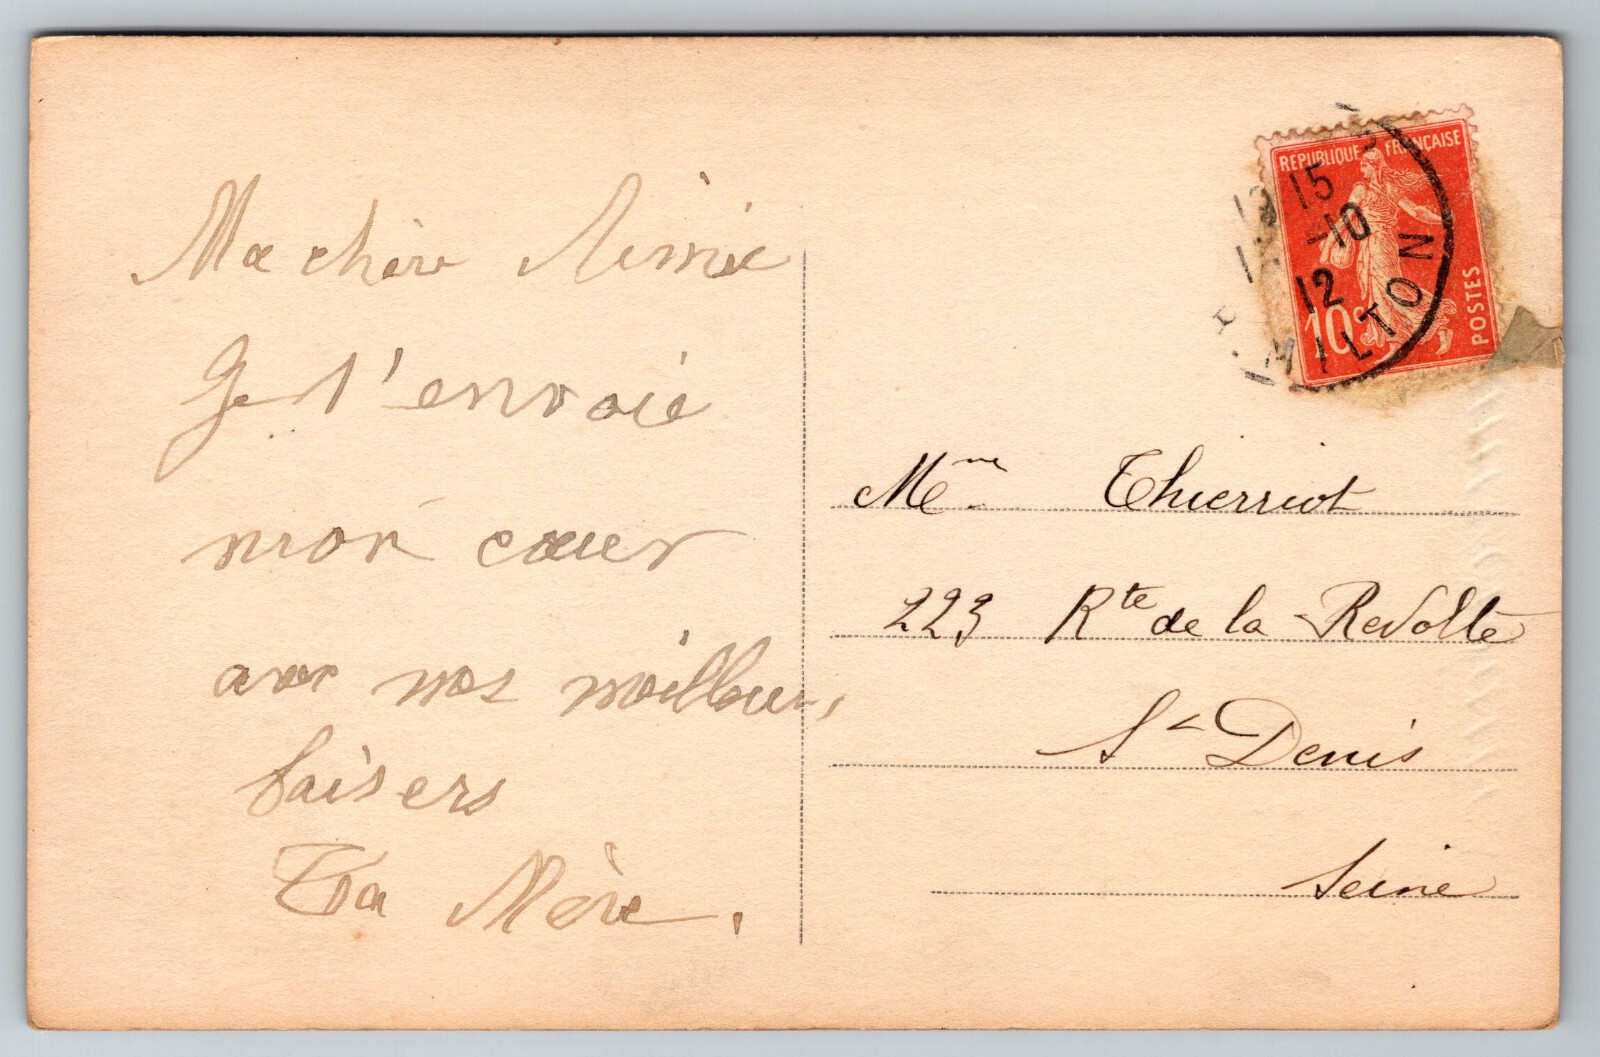 Ma chère
Je t'envoie
mon cœur
avec nos meilleurs
baisers
Ta Mère.
REPUBLIQUE FRANÇAISE
POSTES
10c
15
-10
12
MILTON
Mme Thierriot
223 Rte de la Revolte
St Denis
Seine